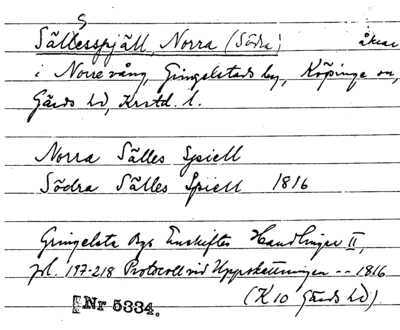 Sällesspjäll, Norra (Södra) åkrar
i Norrevång, Gingelstads by, Köpinge sn,
Gärds hd, Krstd. l.
Norra Sälles Spiell
Södra Sälles Spiell 1816
Gringelsta Bys Enskiftes Handlingar II,
fol. 197-218 Protocoll vid Uppskattningen -- 1816
(K 10 Gärds hd)
Nr 5334.